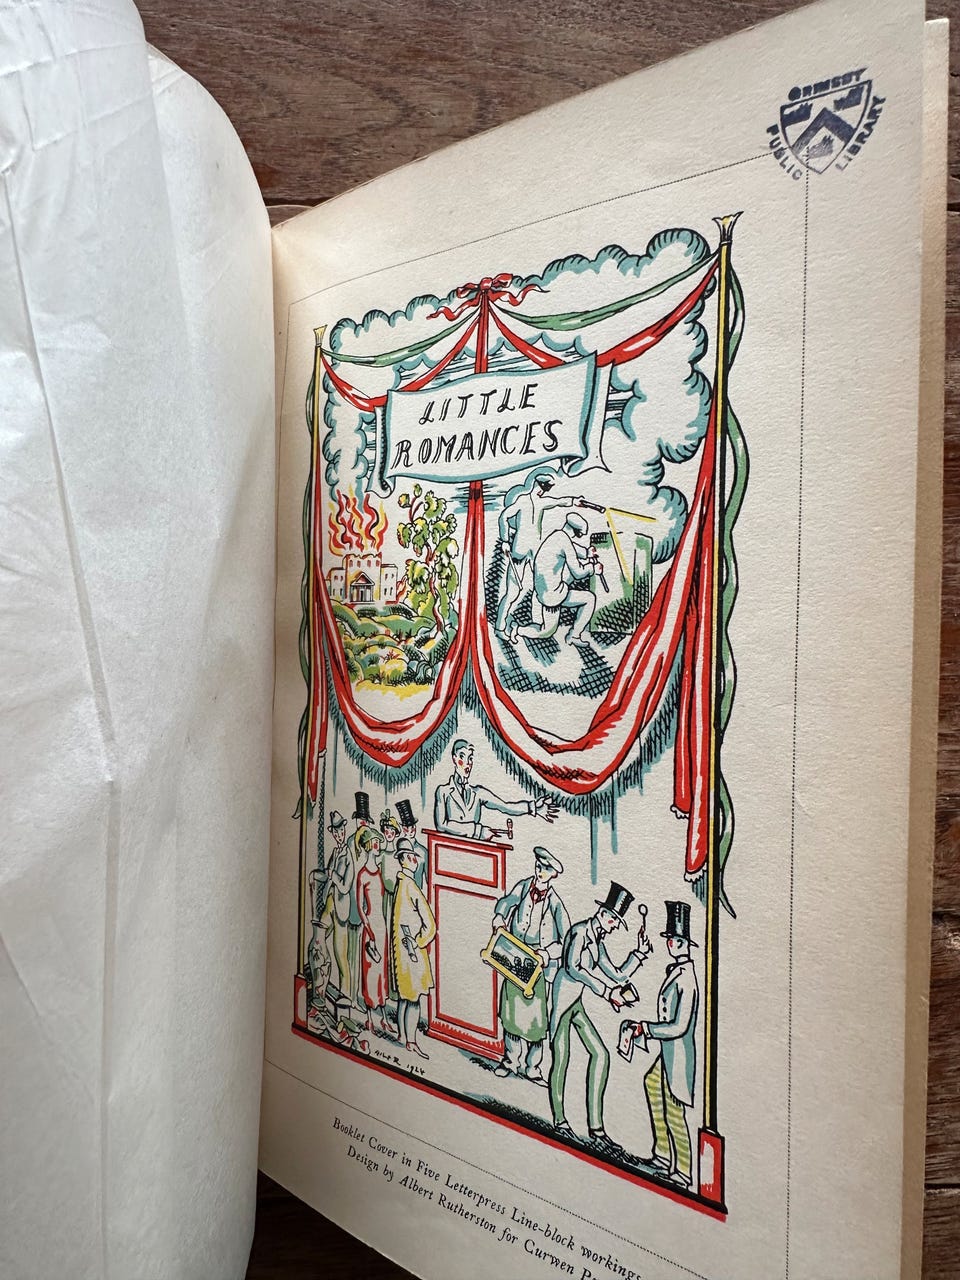 GRIMSBY
PUBLIC LIBRARY
LITTLE
ROMANCES
1924
Booklet Cover in Five Letterpress Line-block workings
Design by Albert Rutherston for Curwen